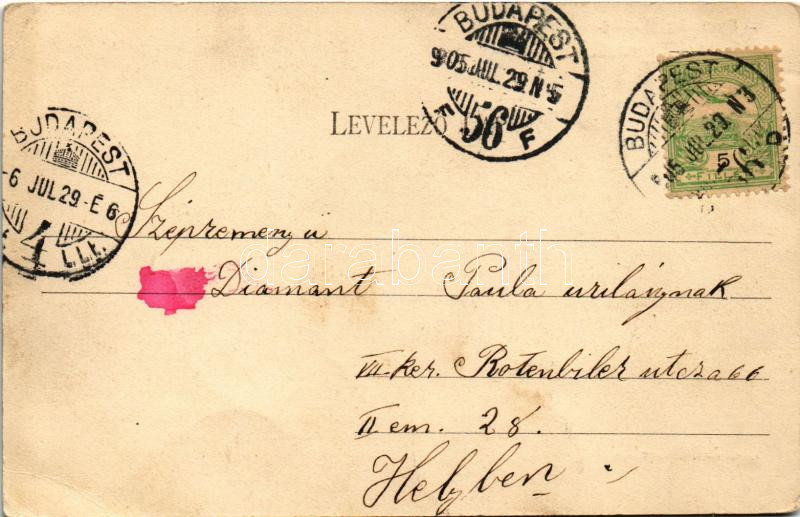 BUDAPEST
905 JUL. 29. N 5
56
F F
BUDAPEST
05 JUL. 29 N 3
D
5
LEVELEZŐ
BUDAPEST
6 JUL 29. E 6
4
I.I.F.
Szépreményü
Diamant Paula urilánynak
VII ker. Rotenbiler utcza 66
II em. 28.
Helyben
darabanth